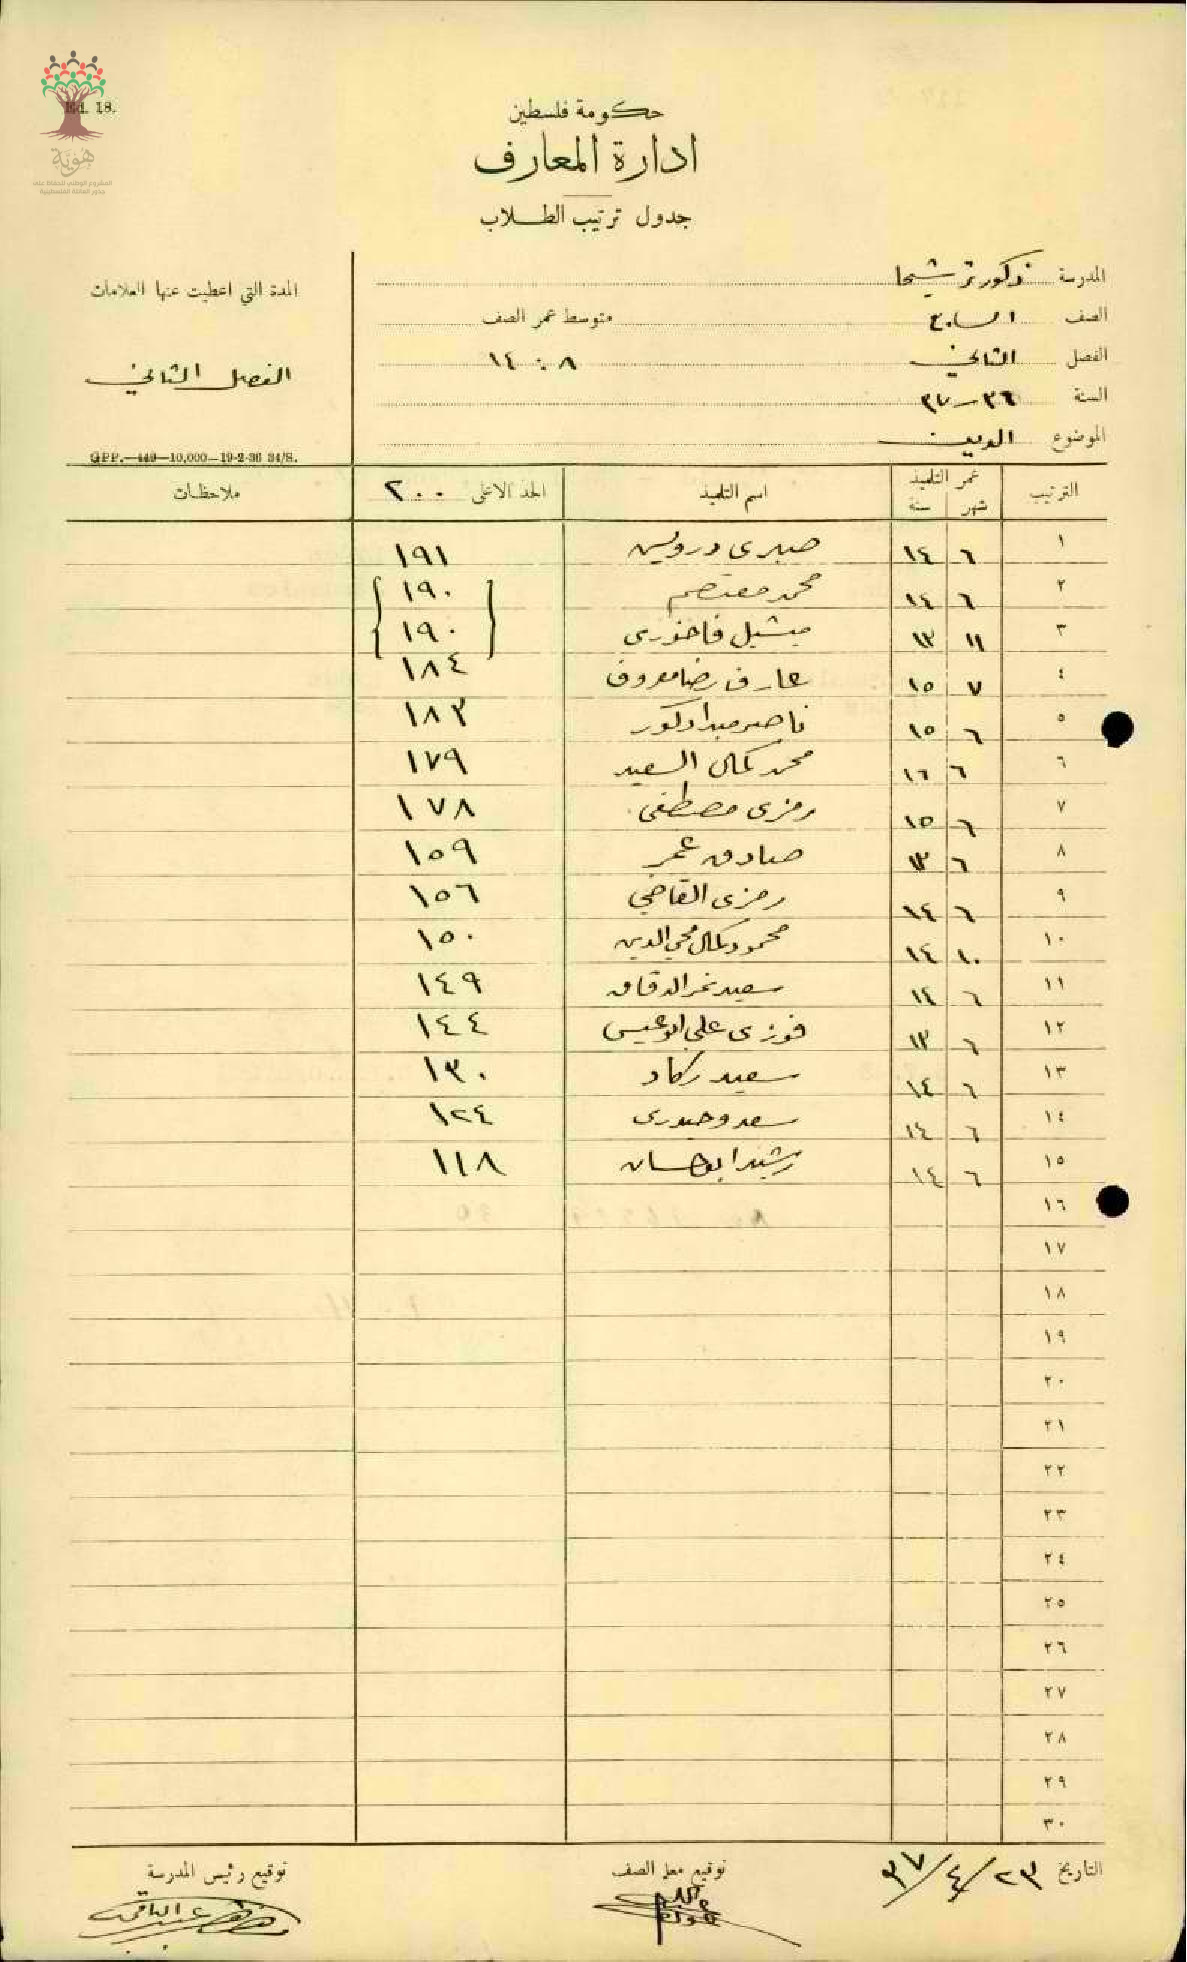 Ed. 18.
هوية
المشروع الوطني للحفاظ على
جذور العائلة الفلسطينية
حكومة فلسطين
ادارة المعارف
جدول ترتيب الطلاب
المدرسة ذكور ترشيحا
الصف السابع متوسط عمر الصف
الفصل الثاني ٨ : ١٤
السنة ٣٦-٣٧
الموضوع الدين
المدة التي اعطيت عنها العلامات
الفصل الثاني
GPP.—449—10,000—19-2-36 34/S.
الترتيب عمر التلميذ شهر سنة اسم التلميذ الحد الاعلى ٢٠٠ ملاحظات
١ ٦ ١٤ صبري درويش ١٩١
٢ ٦ ١٤ محمد معتصم ١٩٠
٣ ١١ ١٣ ميشيل فاخوري ١٩٠
٤ ٧ ١٥ عارف رضا معروف ١٨٤
٥ ٦ ١٥ ناصر ١٨٣
٦ ٦ ١٦ محمد كمال السعيد ١٧٩
٧ ٦ ١٥ رمزي مصطفى ١٧٨
٨ ٦ ١٣ صادق عمر ١٥٩
٩ ٦ ١٤ رمزي القاضي ١٥٦
١٠ ١٠ ١٤ محمود كمال محي الدين ١٥٠
١١ ٦ ١٤ سعيد نمر الدقاق ١٤٩
١٢ ٦ ١٣ فوزي علي ابو عيسى ١٤٤
١٣ ٦ ١٤ سعيد ركاد ١٣٠
١٤ ٦ ١٤ سعد وحيدري ١٢٤
١٥ ٦ ١٤ رشيد ابو حسان ١١٨
١٦
١٧
١٨
١٩
٢٠
٢١
٢٢
٢٣
٢٤
٢٥
٢٦
٢٧
٢٨
٢٩
٣٠
التاريخ ٢٣/٤/٣٧ توقيع معلم الصف توقيع رئيس المدرسة